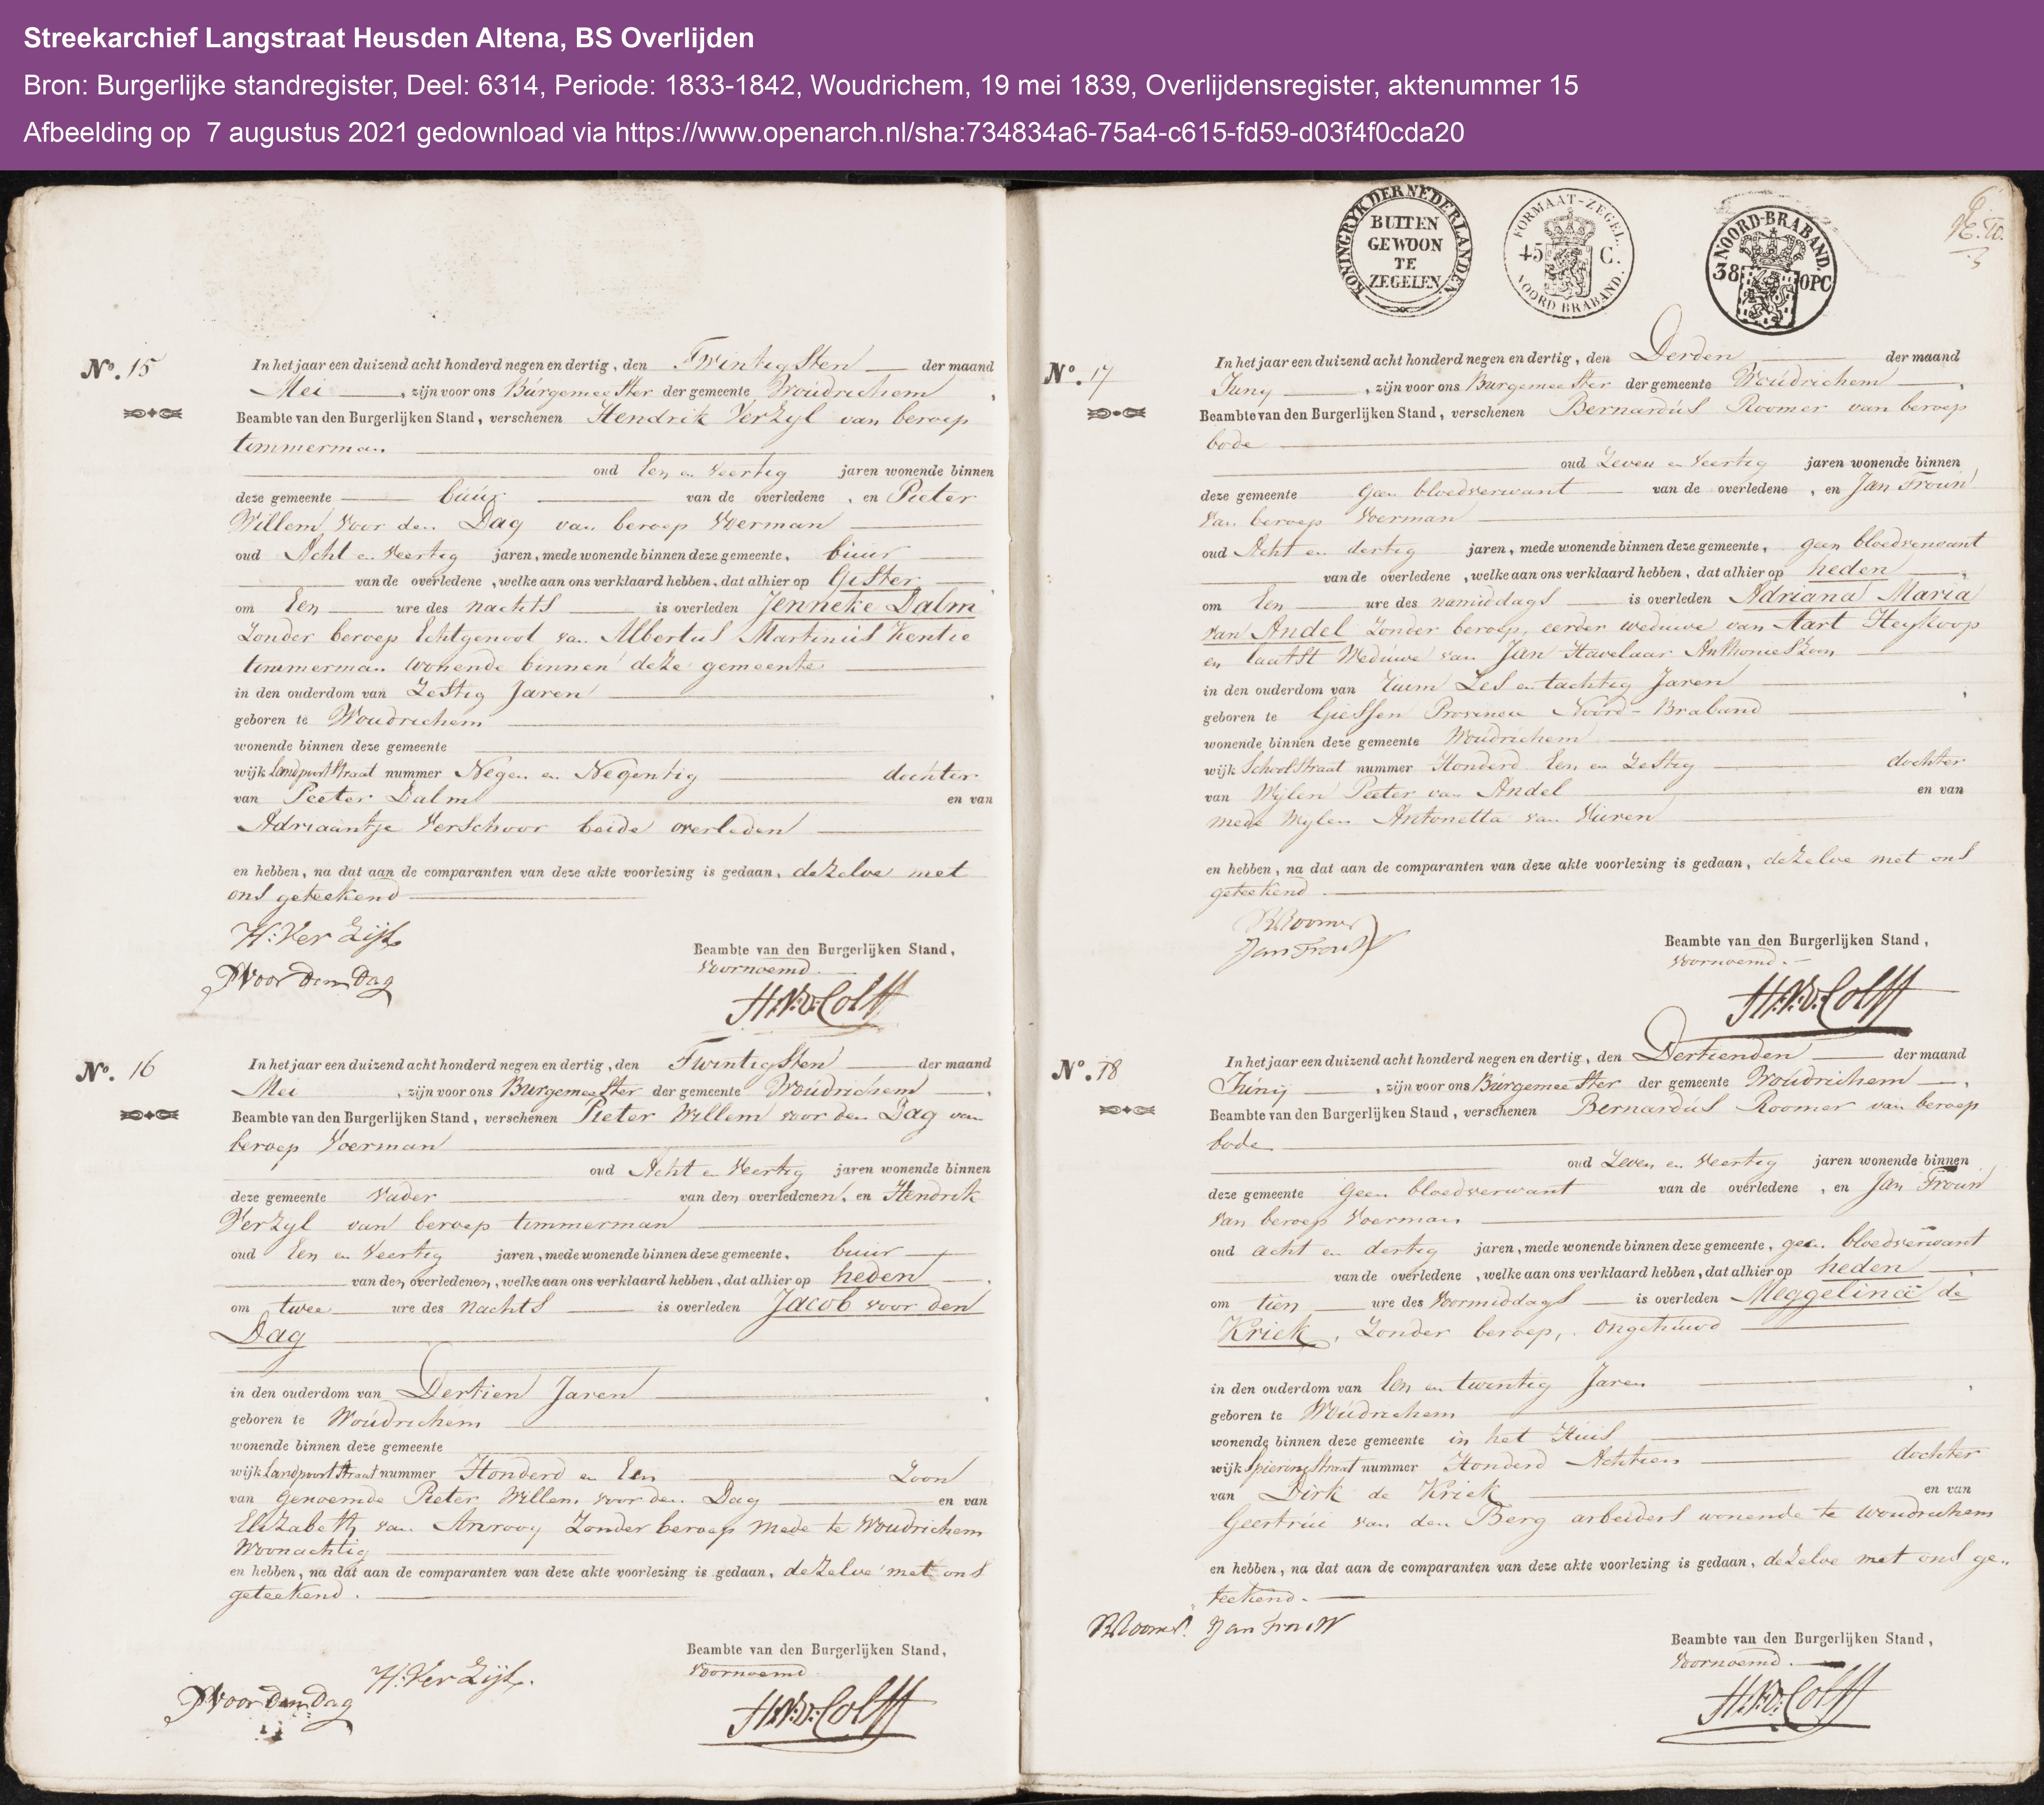 Streekarchief Langstraat Heusden Altena, BS Overlijden
Bron: Burgerlijke standregister, Deel: 6314, Periode: 1833-1842, Woudrichem, 19 mei 1839, Overlijdensregister, aktenummer 15
Afbeelding op 7 augustus 2021 gedownload via https://www.openarch.nl/sha:734834a6-75a4-c615-fd59-d03f4f0cda20
No. 15
In het jaar een duizend acht honderd negen en dertig, den Twintigsten der maand
Mei, zijn voor ons Burgemeester der gemeente Woudrichem,
Beambte van den Burgerlijken Stand, verschenen Hendrik Verzyl van beroep
timmerman
oud Een en Veertig jaren wonende binnen
deze gemeente buur van de overledene, en Pieter
Willem voor den Dag van beroep Voerman
oud Acht en Veertig jaren, mede wonende binnen deze gemeente, buur
van de overledene, welke aan ons verklaard hebben, dat alhier op Gister
om Een ure des nachts is overleden Jenneke Dalm
Zonder beroep Echtgenoot van Albertus Martinus Kentie
timmerman wonende binnen deze gemeente
in den ouderdom van Zestig Jaren,
geboren te Woudrichem
wonende binnen deze gemeente
wijk Landpoortstraat nummer Negen en Negentig dochter
van Peeter Dalm en van
Adriaantje Verschoor beide overleden
en hebben, na dat aan de comparanten van deze akte voorlezing is gedaan, dezelve met
ons geteekend
H: Ver Zijl
PW voor den Dag
Beambte van den Burgerlijken Stand,
Voornoemd.
H:N:v:Colff
No. 16
In het jaar een duizend acht honderd negen en dertig, den Twintigsten der maand
Mei, zijn voor ons Burgemeester der gemeente Woudrichem,
Beambte van den Burgerlijken Stand, verschenen Pieter Willem voor den Dag van
beroep Voerman
oud Acht en Veertig jaren wonende binnen
deze gemeente Vader van den overledenen, en Hendrik
Verzyl van beroep timmerman
oud Een en Veertig jaren, mede wonende binnen deze gemeente, buur
van den overledenen, welke aan ons verklaard hebben, dat alhier op heden,
om twee ure des nachts is overleden Jacob voor den
Dag
in den ouderdom van Dertien Jaren,
geboren te Woudrichem
wonende binnen deze gemeente
wijk Landpoortstraat nummer Honderd en Een Zoon
van Genoemde Pieter Willem voor den Dag en van
Elizabeth van Anrooy Zonder beroep mede te Woudrichem
Woonachtig
en hebben, na dat aan de comparanten van deze akte voorlezing is gedaan, dezelve met ons
geteekend.
Beambte van den Burgerlijken Stand,
Voornoemd
PW voor den Dag H: Ver Zijl.
H:N:v:Colff
KONINGRYK DER NEDERLANDEN
BUITEN
GEWOON
TE
ZEGELEN
FORMAAT-ZEGEL.
45 C.
NOORD BRABAND.
NOORD-BRABAND.
38 OPC
No. 17
In het jaar een duizend acht honderd negen en dertig, den Derden der maand
Juny, zijn voor ons Burgemeester der gemeente Woudrichem,
Beambte van den Burgerlijken Stand, verschenen Bernardus Roomer van beroep
bode
oud Zeven en Veertig jaren wonende binnen
deze gemeente Geen bloedverwant van de overledene, en Jan Trouw
Van beroep Voerman
oud Acht en dertig jaren, mede wonende binnen deze gemeente, geen bloedverwant
van de overledene, welke aan ons verklaard hebben, dat alhier op heden,
om Een ure des namiddags is overleden Adriana Maria
van Andel Zonder beroep, eerder weduwe van Aart Heykoop
en laatst Weduwe van Jan Havelaar Anthoniesz̶oon
in den ouderdom van ruim Zes en tachtig Jaren,
geboren te Giessen Provincie Noord-Braband
wonende binnen deze gemeente Woudrichem
wijk Schoolstraat nummer Honderd Een en Zestig dochter
van Wylen Pieter van Andel en van
mede Wylen Antonetta van Vuren
en hebben, na dat aan de comparanten van deze akte voorlezing is gedaan, dezelve met ons
geteekend
BRoomer
Jan Trouw
Beambte van den Burgerlijken Stand,
Voornoemd.
H:N:v:Colff
No. 18
In het jaar een duizend acht honderd negen en dertig, den Dertienden der maand
Junij, zijn voor ons Burgemeester der gemeente Woudrichem,
Beambte van den Burgerlijken Stand, verschenen Bernardus Roomer van beroep
bode
oud Zeven en Veertig jaren wonende binnen
deze gemeente Geen bloedverwant van de overledene, en Jan Trouw
Van beroep Voerman
oud acht en dertig jaren, mede wonende binnen deze gemeente, geen bloedverwant
van de overledene, welke aan ons verklaard hebben, dat alhier op heden
om tien ure des Voormiddags is overleden Meggelinæ de
Kriek, Zonder beroep, ongehuwd
in den ouderdom van Een en twintig Jaren,
geboren te Woudrichem
wonende binnen deze gemeente in het Huis
wijk Spieringstraat nummer Honderd Achttien dochter
van Dirk de Kriek en van
Geertrui van den Berg arbeiders wonende te Woudrichem
en hebben, na dat aan de comparanten van deze akte voorlezing is gedaan, dezelve met ons ge-
teekend.
BRoomer. Jan Trouw
Beambte van den Burgerlijken Stand,
Voornoemd.
H:N:v:Colff